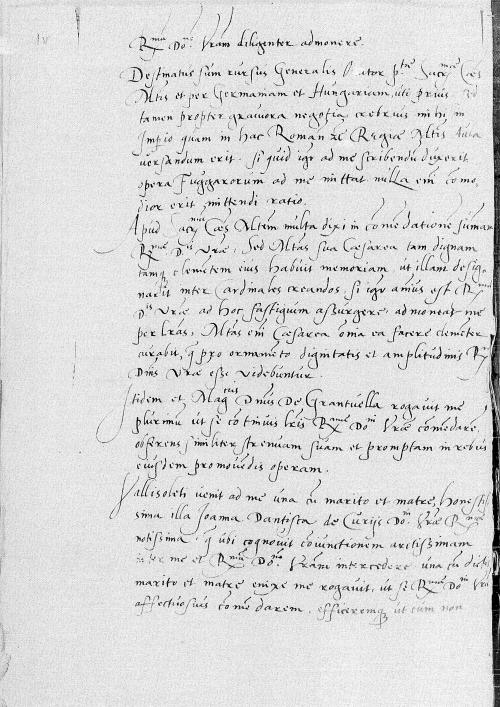 R^mam Do^nem Vram diligenter admonere.
Destinatus sum rursus Generalis Orator p^tae Sacr^mae Caes
Altis et per Germaniam et Hungariam, uti prius
tamen propter graviora negotia crebrius mihi in
Impio quam in hac Romān et Regiae Altis aula
versandum erit. Si quid igr ad me scribendū duxerit
opera Fuggarorum ad me mittat nulla enī como,
dior erit mittendi ratio.
Apud Sacr^mam Caes Altem multa dixi in comēdatione sūmam
R^mae D^nis Vrae, Sed Altas sua Caesarea tam dignam
tamq clementem eius habuit memoriam, ut illam desig
narit inter Cardinales creandos, si igr animus est R^mae
D^ni Vrae ad hoc fastigium assurgere, admoneat me
per lras, Altas enī Caesarea oīa ea facere clementer
curabit, q pro ornamento dignitatis et amplitudinis R^mae
Dnis Vrae esse videbuntur.
Itidem et Mag^cus Dnus De Grantuella rogavit me
plurimū ut se continuis lris R^mae Do^ni Vrae comēdare,
offerens similiter strenuam suam et promptam in rebus
eiusdem promovēdis operam.
Vallisoleti venit ad me una cū marito et matre, honestis
sima illa Joanna Dantisca de Curijs Do^ni Vrae R^mae
notissima, q ubi cognovit coniunctionem arctissimam
inter me et R^mam Do^nem Vram intercedere una cū dictis
marito et matre enixe me rogavit, ut se R^mae Do^ni Vrae
affectuosius comēdarem, efficeremq ut cum non